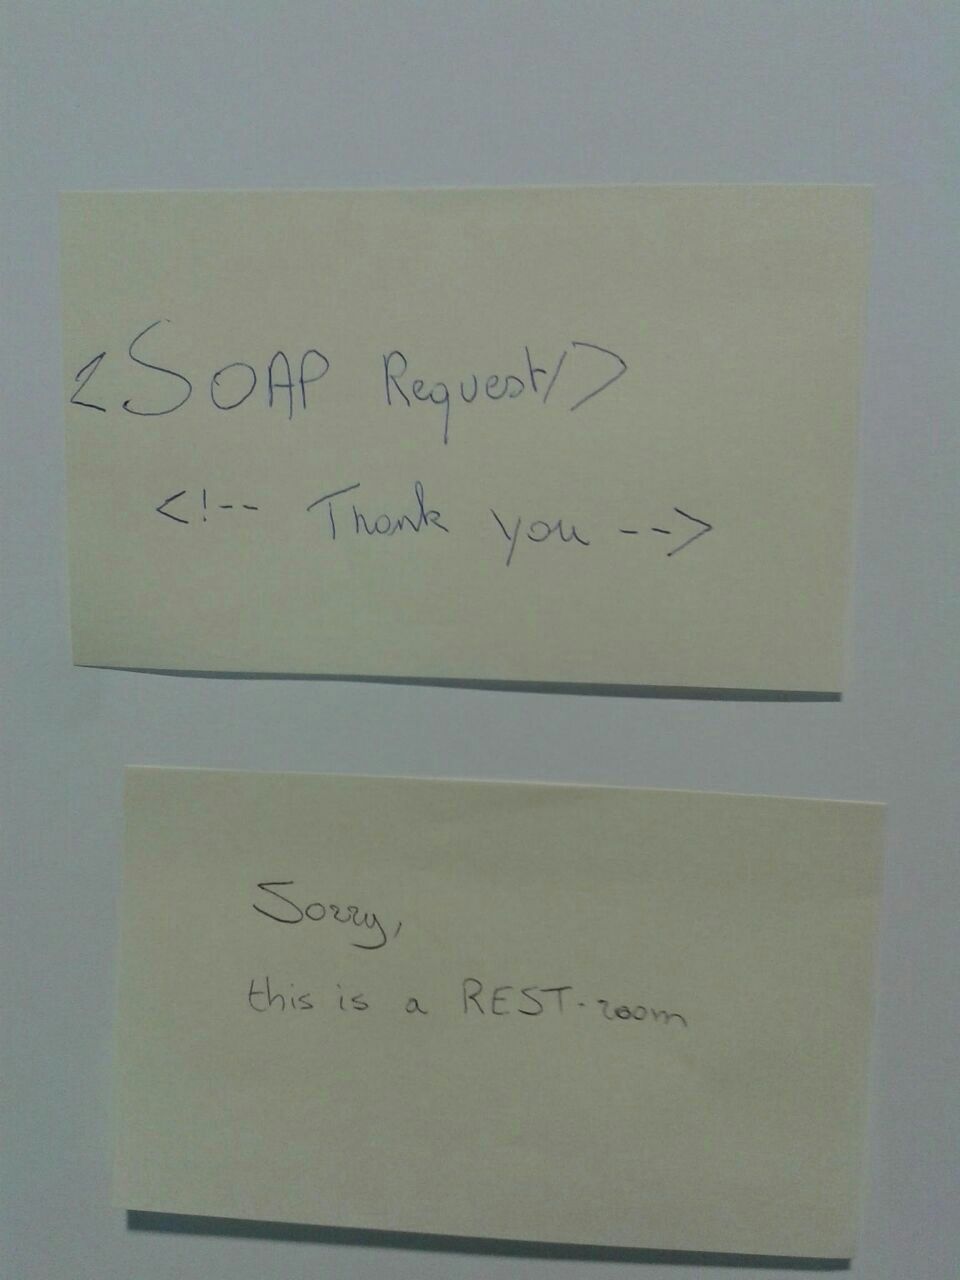 <SOAP Request/>
<!-- Thank you -->
Sorry,
this is a REST-room